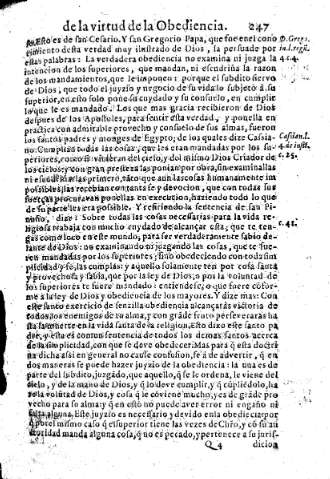 de la virtud de la Obediencia. 247
Esto es de san Cesario. Y san Gregorio Papa, que fue en el cono
cimiento desta verdad muy ilustrado de Dios, la persuade por
estas palabras: La verdadera obediencia no examina ni juzga la
intencion de los superiores, que mandan, ni escudriña la razon
de los mandamientos, que le imponen: porque el subdito siervo
de Dios, que todo el juyzio y negocio de su vida lo subjetò à su
superior, en esto solo pone su cuydado y su consuelo, en cumplir
lo que le es mandado. Los que mas gracia recibieron de Dios
despues de los Apostoles, para sentir esta verdad, y ponella en
practica con admirable provecho y consuelo de sus almas, fueron
los santos padres y monges de Egypto, de los quales dize Cassia-
no: Cumplian todas las cosas, que les eran mandadas por los su-
periores, como si vinieran del cielo, y del mismo Dios Criador de
los cielos; y con gran presteza las ponian por obra, sin examinallas
ni
possibles las recebian con tanta fe y devocion, que con todas sus
fuerças procuravan ponellas en execucion, haziendo todo lo que
de su parte les era possible. Y refiriendo la sentencia de san Pi-
nufio, dize: Sobre todas las cosas necessarias para la vida re-
ligiosa trabaja con mucho cuydado de alcançar esta; que te ten-
gas como loco en este mundo, para ser verdaderamente sabio de-
lante de Dios: no examinando ni juzgando las cosas, que te fue-
ren mandadas por los superiores; sino obedeciendo con toda sim-
plicidad y fe, las cumplas: y aquello solamente ten por cosa santa
y provechosa y sabia, que por la ley de Dios, o por la voluntad de
los superiores te fuere mandado: entiendese, o que fuere cofor-
me a la ley de Dios y obediencia de los mayores. Y dize mas: Con
este santo exercicio de senzilla obediencia alcançaràs victoria de
todos los enemigos de su alma, y con gràde fruto perseveraras ha
sta la muerte en la vida santa de la religion. Esto dize este santo pa
dre, y esta es comun sentencia de todos los demas santos acerca
de la simplicidad, con que se deve obedecer. Mas para q̃ esta doctri
na dicha assi en general no cause confusion, se à de advertir, q̃ en
dos maneras se puede hazer juyzio de la obediencia: la una es de
parte del subdito, juzgando, que aquello, q̃ se le ordena, le viene del
cielo, y de la mano de Dios, y q̃ lo deve cumplir, y q̃ cũpliédolo, ha
ze la volũtad de Dios, y cosa q̃ le cõviene mucho, y es de gràde pro
vecho para su alma: y q̃ en esto no puede aver error ni engaño ni
falta alguna. Este juyzio es necessario y devido en la obediecia: por
q̃ por el mismo caso q̃ el superior tiene las vezes de Chro, y cõ su au
toridad manda alguna cosa, q̃ no es pecado, y pertenece a su juris-
Q 4 dicion
D. Grego.
in.I.reg.li.
4. c. 4.
Cassian. l.
4. de instit.
c. 25.
c. 41.